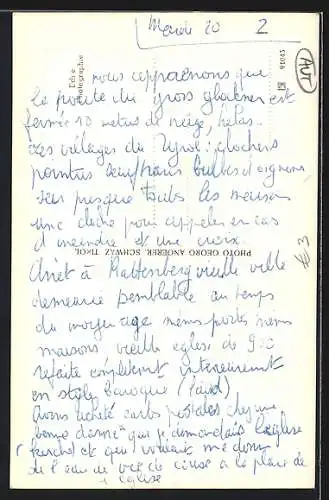 Mardi 20 2
Echte
Photographie
91045
AUT
nous apprenons que
la route du gross glockner est
fermée 10 metres de neige, hélas.
Les villages du Tyrol : clochers
pointus bulbes d'oignons
sur presque touts les maisons
une cloche pour appeler en cas
d'incendie et une croix.
PHOTO GEORG ANGERER, SCHWAZ TIROL
Arret à Rattenberg vieille ville
demeurée semblable au temps
du moyen age mêmes portes mêmes
maisons vieille eglise de 900
refaite complètement interieurement
en style baroque (laid)
Avons acheté cartes postales chez une
bonne dame que je demandais l'eglise
(kirche) et qui voulait me donner
de l'eau de vie de cerise à la place de
l'eglise
€3